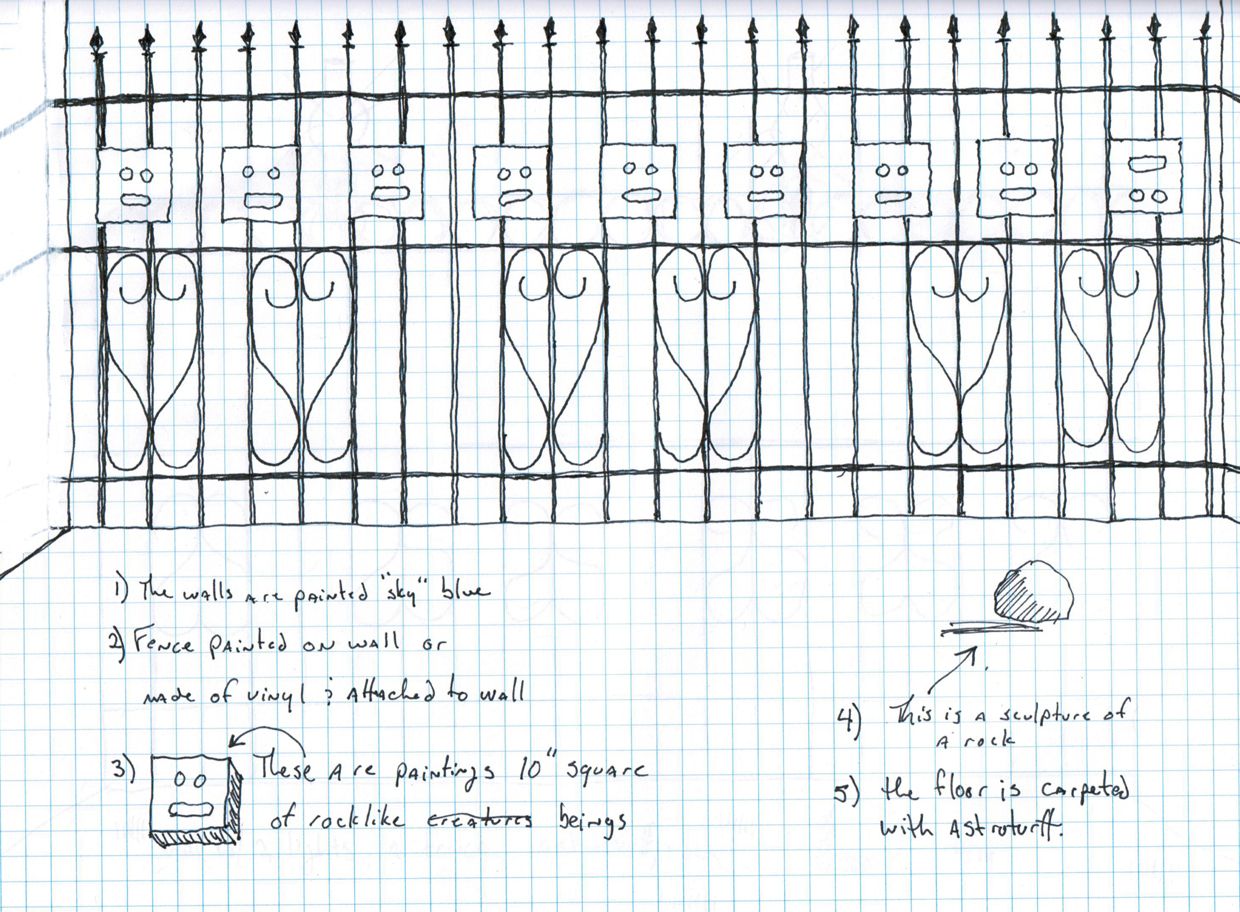 1) The walls are painted "sky" blue
2) Fence painted on wall or
made of vinyl & attached to wall
3) These are paintings 10" square
of rocklike creatures beings
4) This is a sculpture of
a rock
5) the floor is carpeted
with Astroturff.